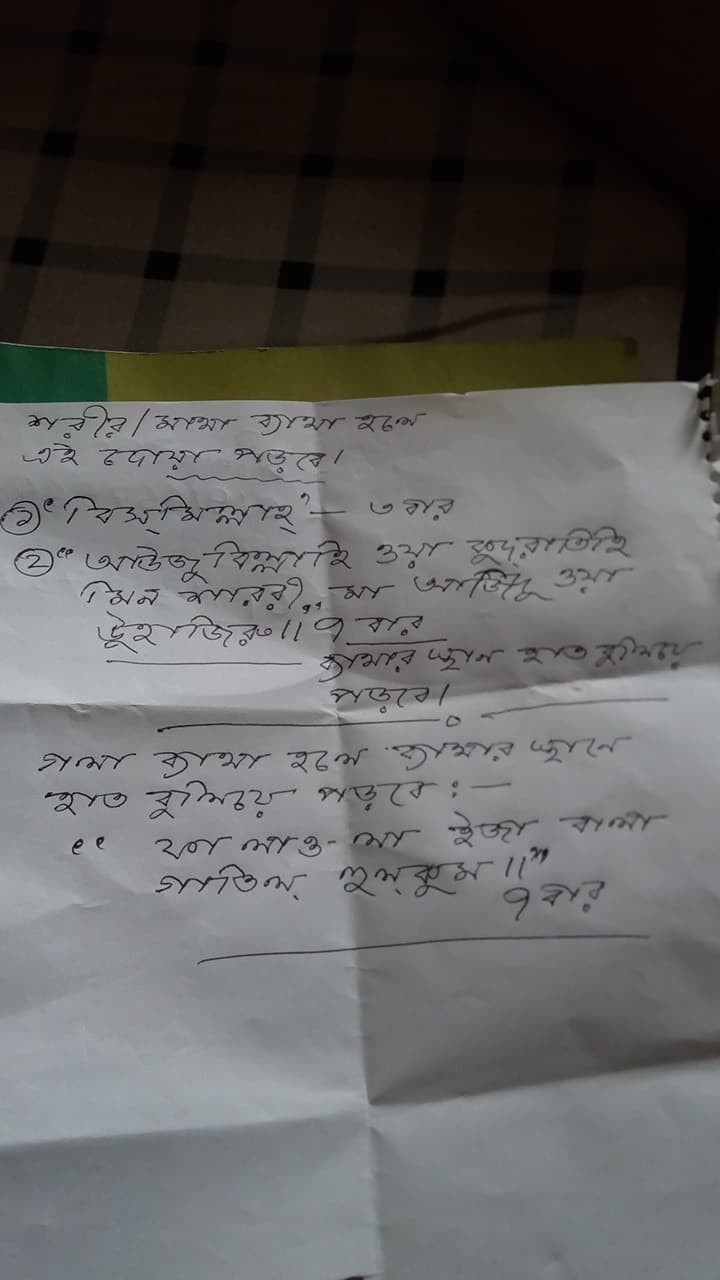 শরীর/মাথা ব্যাথা হলে
এই দোয়া পড়বে।
① “বিস্‌মিল্লাহ্” — ৩ বার
② “আউজুবিল্লাহি ওয়া কুদ্‌রাতিহি
মিন শাররী মা আজিদু ওয়া
উহাজিরু॥ ৭ বার
ব্যাথার স্থান হাত বুলিয়ে
পড়বে।
গলা ব্যাথা হলে ব্যাথার স্থানে
হাত বুলিয়ে পড়বে :—
“ ফা লাও-লা ইজা বালা
গাতিল্ হুল্‌কুম॥” ৭ বার